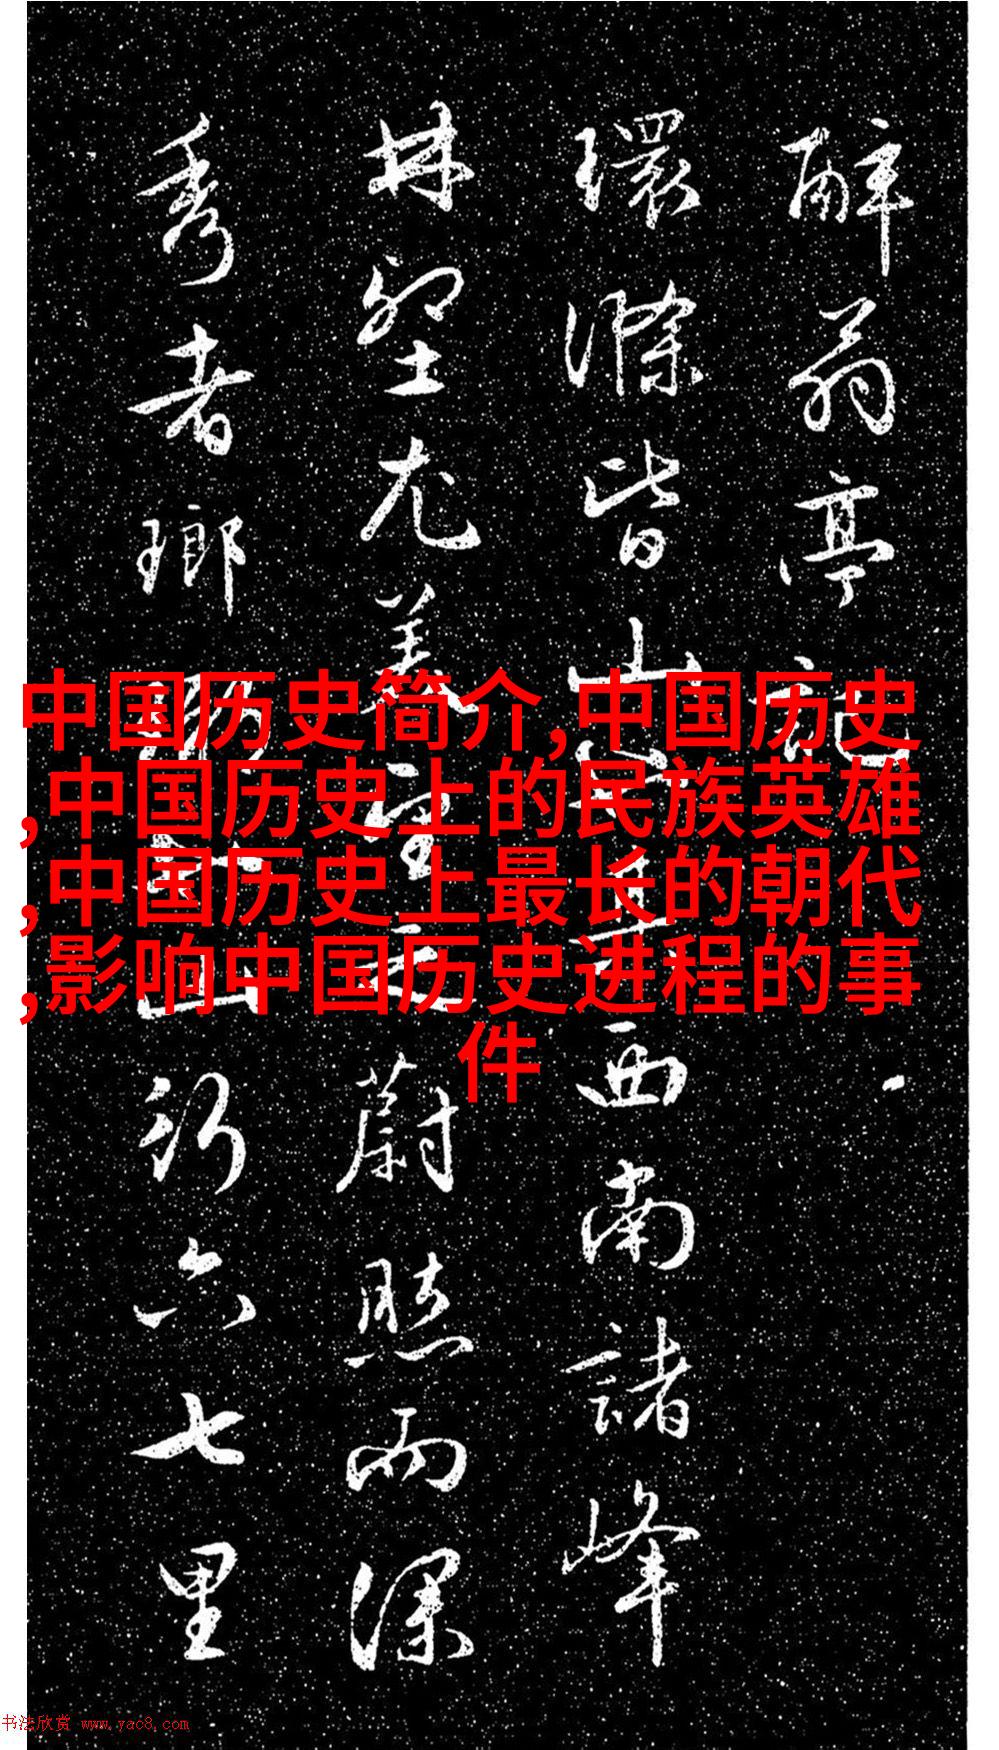 醉翁亭記
環滁皆山也其西南諸峰
林壑尤美望之蔚然而深
秀者瑯琊也山行六七里
中国历史简介,中国历史
,中国历史上的民族英雄
,中国历史上最长的朝代
,影响中国历史进程的事
件
书法欣赏 www.yac8.com